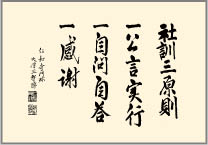 社訓三原則
一公言実行
一自問自答
一感謝